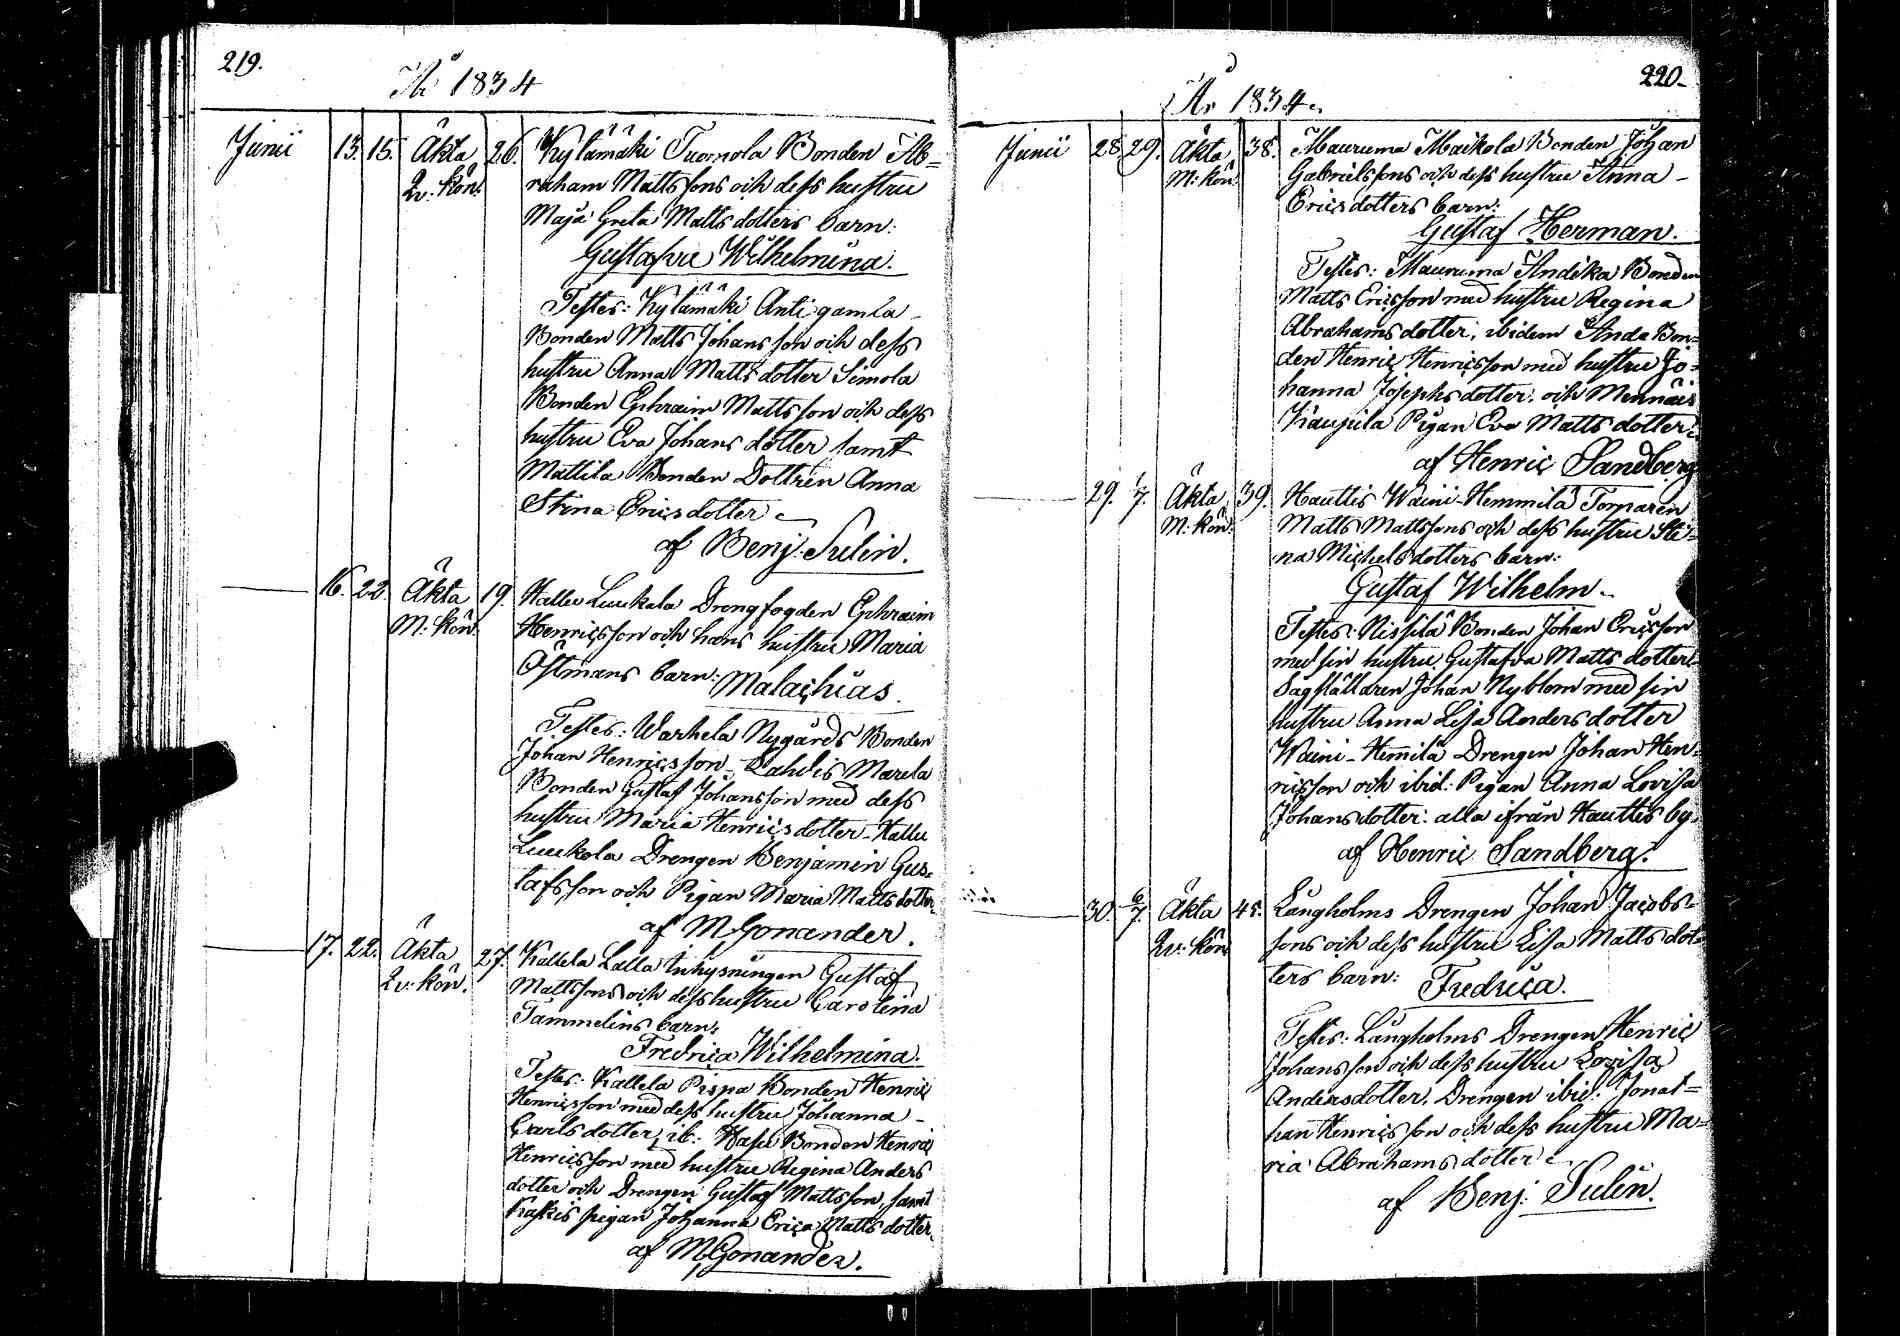 219.
År 1834
Junii 13. 15. Äkta 26. Kylämäki Tuomola Bonden Ab=
Qv: kön. raham Mattssons och dess hustru
Maja Greta Matts dotters barn:
Gustafva Wilhelmina.
Testes: Kylämäki Anti gamla
Bonden Matts Johansson och dess
hustru Anna Matts dotter Simola
Bonden Ephraim Mattsson och dess
hustru Eva Johans dotter samt
Mattila Bonden Dottren Anna
Stina Ericsdotter
af Benj: Sulin.
16. 22. Äkta 19. Hallu Luukala Drengfogden Ephraim
M: kön. Henricsson och hans hustru Maria
Östmans barn: Malachias.
Testes: Warhela Nygårds Bonden
Johan Henricsson, Lahdis Marela
Bonden Gustaf Johansson med dess
hustru Maria Henricsdotter - Hallu
Luukola Drengen Benjamin Gus=
tafsson och Pigan Maria Matts dotter
af M. Gonander.
17. 22. Äkta 27. Kallela Lalla Inhysningen Gustaf
Qv: kön. Mattssons och dess hustru Carolina
Tammelins barn:
Fredrica Wilhelmina.
Testes: Kallela Pispa Bonden Henric
Henricsson med dess hustru Johanna
Carls dotter, ib: Hasu Bonden Henric
Henricsson med hustru Regina Anders
dotter och Drengen Gustaf Mattsson, samt
Kaskis pigan Johanna Erica Matts dotter.
af M. Gonander.
220.
År 1834.
Junii 28. 29. Äkta 38. Mauruma Maikola Bonden Johan
M: kön. Gabrielssons och dess hustru Anna
Ericsdotters barn:
Gustaf Herman.
Testes: Mauruma Andika Bonden
Matts Ericsson med hustru Regina
Abrahamsdotter; ibidem Anda Bon=
den Henric Henricsson med hustru Jo=
hanna Josephsdotter, och Mennäis
Kaupila Pigan Eva Matts dotter.
af Henric Sandberg
29. 1/7. Äkta 39. Hauttis Waini-Hemmilä Torparen
M: kön. Matts Mattssons och dess hustru Sti=
na Michelsdotters barn:
Gustaf Wilhelm.
Testes: Nissilä Bonden Johan Ericsson
med sin hustru Gustafva Matts dotter
Sågställaren Johan Nyblom med sin
hustru Anna Lisa Anders dotter
Waini-Hemilä Drengen Johan Hen=
ricsson och ibid: Pigan Anna Lovisa
Johansdotter: alla ifrån Hauttis by.
af Henric Sandberg.
30. 6/7. Äkta 45. Långholms Drengen Johan Jacobs=
Qv: kön. sons och dess hustru Lisa Matts dot=
ters barn: Fredrica.
Testes: Långholms Drengen Henric
Johansson och dess hustru Lovisa
Andersdotter, Drengen ibid: Jonat=
han Henricsson och dess hustru Ma=
ria Abrahams dotter
af Benj: Sulin.